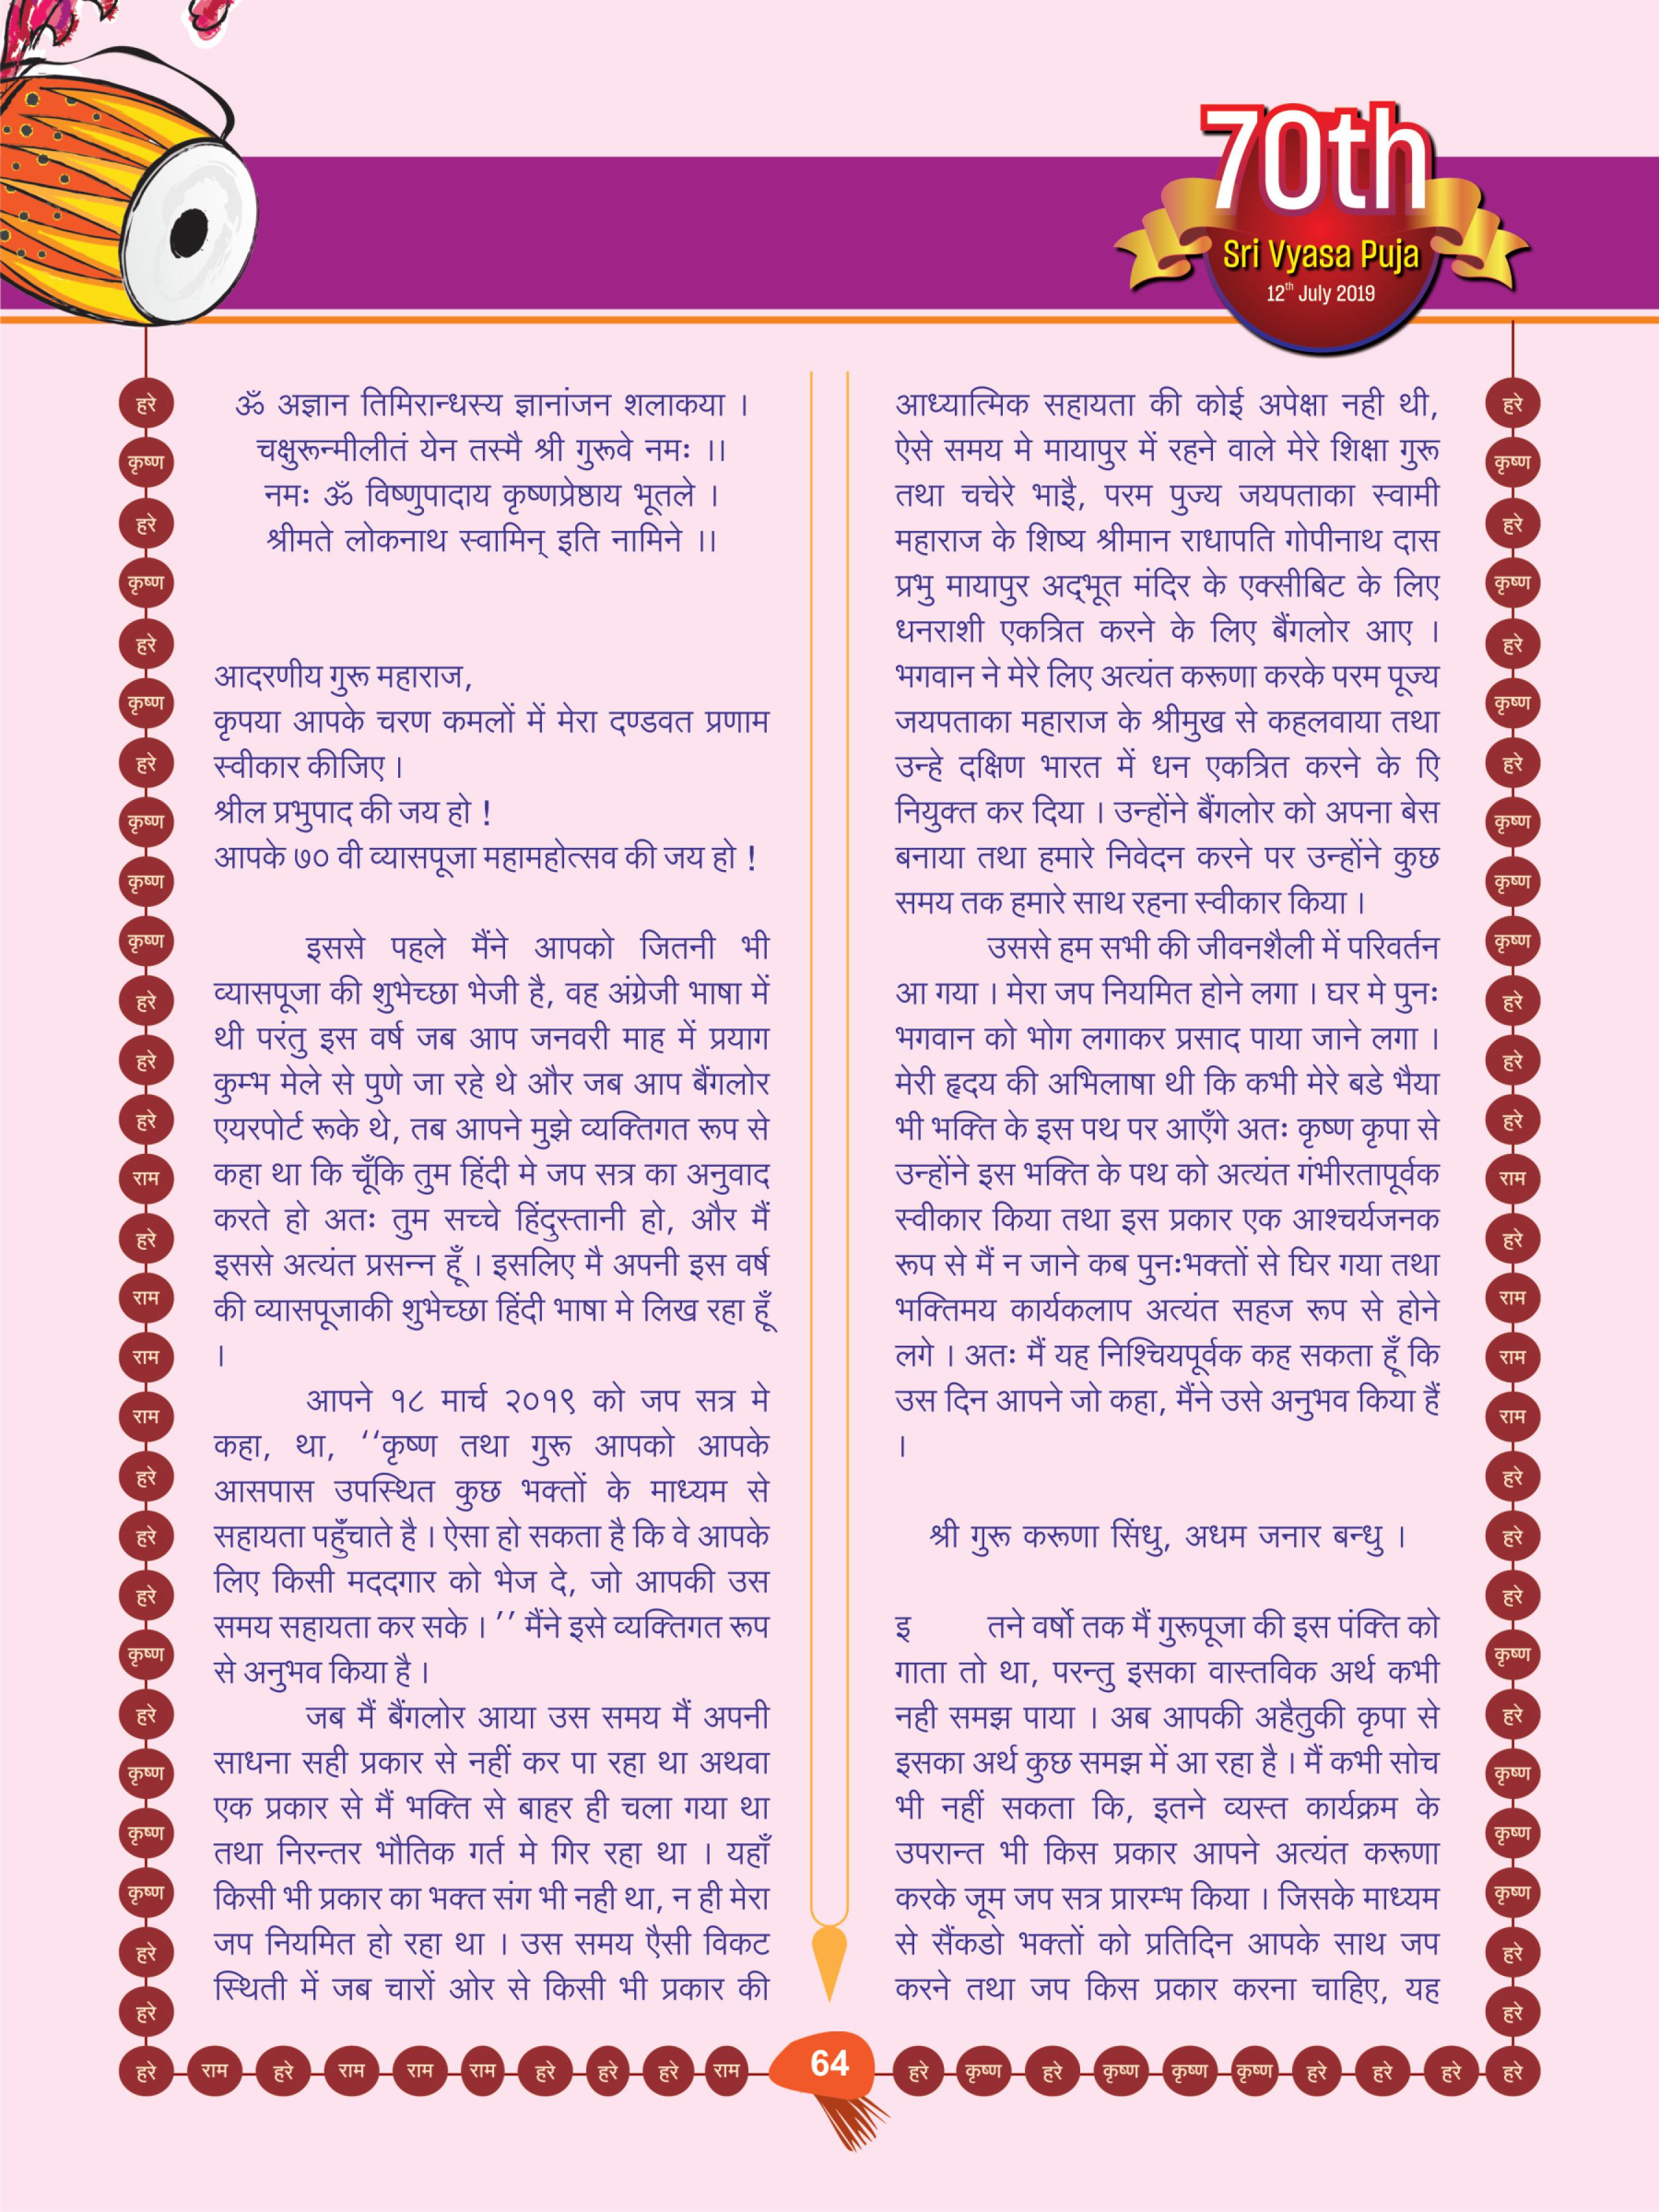 70th
Sri Vyasa Puja
12th July 2019
ॐ अज्ञान तिमिरान्धस्य ज्ञानांजन शलाकया ।
चक्षुरून्मीलीतं येन तस्मै श्री गुरूवे नमः ।।
नमः ॐ विष्णुपादाय कृष्णप्रेष्ठाय भूतले ।
श्रीमते लोकनाथ स्वामिन् इति नामिने ।।
आदरणीय गुरू महाराज,
कृपया आपके चरण कमलों में मेरा दण्डवत प्रणाम
स्वीकार कीजिए ।
श्रील प्रभुपाद की जय हो !
आपके ७० वी व्यासपूजा महामहोत्सव की जय हो !
इससे पहले मैंने आपको जितनी भी
व्यासपूजा की शुभेच्छा भेजी है, वह अंग्रेजी भाषा में
थी परंतु इस वर्ष जब आप जनवरी माह में प्रयाग
कुम्भ मेले से पुणे जा रहे थे और जब आप बैंगलोर
एयरपोर्ट रूके थे, तब आपने मुझे व्यक्तिगत रूप से
कहा था कि चूँकि तुम हिंदी मे जप सत्र का अनुवाद
करते हो अतः तुम सच्चे हिंदुस्तानी हो, और मैं
इससे अत्यंत प्रसन्न हूँ । इसलिए मै अपनी इस वर्ष
की व्यासपूजाकी शुभेच्छा हिंदी भाषा मे लिख रहा हूँ
।
आपने १८ मार्च २०१९ को जप सत्र मे
कहा, था, ‘‘कृष्ण तथा गुरू आपको आपके
आसपास उपस्थित कुछ भक्तों के माध्यम से
सहायता पहुँचाते है । ऐसा हो सकता है कि वे आपके
लिए किसी मददगार को भेज दे, जो आपकी उस
समय सहायता कर सके । ’’ मैंने इसे व्यक्तिगत रूप
से अनुभव किया है ।
जब मैं बैंगलोर आया उस समय मैं अपनी
साधना सही प्रकार से नहीं कर पा रहा था अथवा
एक प्रकार से मैं भक्ति से बाहर ही चला गया था
तथा निरन्तर भौतिक गर्त मे गिर रहा था । यहाँ
किसी भी प्रकार का भक्त संग भी नही था, न ही मेरा
जप नियमित हो रहा था । उस समय ऐसी विकट
स्थिती में जब चारों ओर से किसी भी प्रकार की
आध्यात्मिक सहायता की कोई अपेक्षा नही थी,
ऐसे समय मे मायापुर में रहने वाले मेरे शिक्षा गुरू
तथा चचेरे भाइै, परम पुज्य जयपताका स्वामी
महाराज के शिष्य श्रीमान राधापति गोपीनाथ दास
प्रभु मायापुर अद्भूत मंदिर के एक्सीबिट के लिए
धनराशी एकत्रित करने के लिए बैंगलोर आए ।
भगवान ने मेरे लिए अत्यंत करूणा करके परम पूज्य
जयपताका महाराज के श्रीमुख से कहलवाया तथा
उन्हे दक्षिण भारत में धन एकत्रित करने के एि
नियुक्त कर दिया । उन्होंने बैंगलोर को अपना बेस
बनाया तथा हमारे निवेदन करने पर उन्होंने कुछ
समय तक हमारे साथ रहना स्वीकार किया ।
उससे हम सभी की जीवनशैली में परिवर्तन
आ गया । मेरा जप नियमित होने लगा । घर मे पुनः
भगवान को भोग लगाकर प्रसाद पाया जाने लगा ।
मेरी हृदय की अभिलाषा थी कि कभी मेरे बडे भैया
भी भक्ति के इस पथ पर आएँगे अतः कृष्ण कृपा से
उन्होंने इस भक्ति के पथ को अत्यंत गंभीरतापूर्वक
स्वीकार किया तथा इस प्रकार एक आश्चर्यजनक
रूप से मैं न जाने कब पुनःभक्तों से घिर गया तथा
भक्तिमय कार्यकलाप अत्यंत सहज रूप से होने
लगे । अतः मैं यह निश्चियपूर्वक कह सकता हूँ कि
उस दिन आपने जो कहा, मैंने उसे अनुभव किया हैं
।
श्री गुरू करूणा सिंधु, अधम जनार बन्धु ।
इ तने वर्षो तक मैं गुरूपूजा की इस पंक्ति को
गाता तो था, परन्तु इसका वास्तविक अर्थ कभी
नही समझ पाया । अब आपकी अहैतुकी कृपा से
इसका अर्थ कुछ समझ में आ रहा है । मैं कभी सोच
भी नहीं सकता कि, इतने व्यस्त कार्यक्रम के
उपरान्त भी किस प्रकार आपने अत्यंत करूणा
करके जूम जप सत्र प्रारम्भ किया । जिसके माध्यम
से सैंकडो भक्तों को प्रतिदिन आपके साथ जप
करने तथा जप किस प्रकार करना चाहिए, यह
हरे
कृष्ण
हरे
कृष्ण
हरे
कृष्ण
हरे
कृष्ण
कृष्ण
कृष्ण
हरे
हरे
हरे
राम
हरे
राम
राम
राम
हरे
हरे
हरे
कृष्ण
हरे
कृष्ण
कृष्ण
कृष्ण
हरे
हरे
हरे
कृष्ण
हरे
कृष्ण
हरे
कृष्ण
हरे
कृष्ण
कृष्ण
कृष्ण
हरे
हरे
हरे
राम
हरे
राम
राम
राम
हरे
हरे
हरे
कृष्ण
हरे
कृष्ण
कृष्ण
कृष्ण
हरे
हरे
हरे राम हरे राम राम राम हरे हरे हरे राम 64 हरे कृष्ण हरे कृष्ण कृष्ण कृष्ण हरे हरे हरे हरे